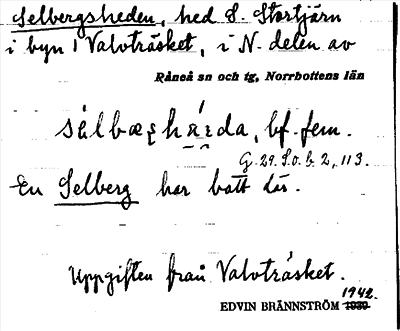 Selbergsheden, hed S. Stortjärn
i byn Valvträsket, i N. delen av
Råneå sn och tg, Norrbottens län
bf. fem.
G. 29. S.o.b. 2, 113.
En Selberg har bott där.
Uppgiften från Valvträsket.
1942.
EDVIN BRÄNNSTRÖM 1939